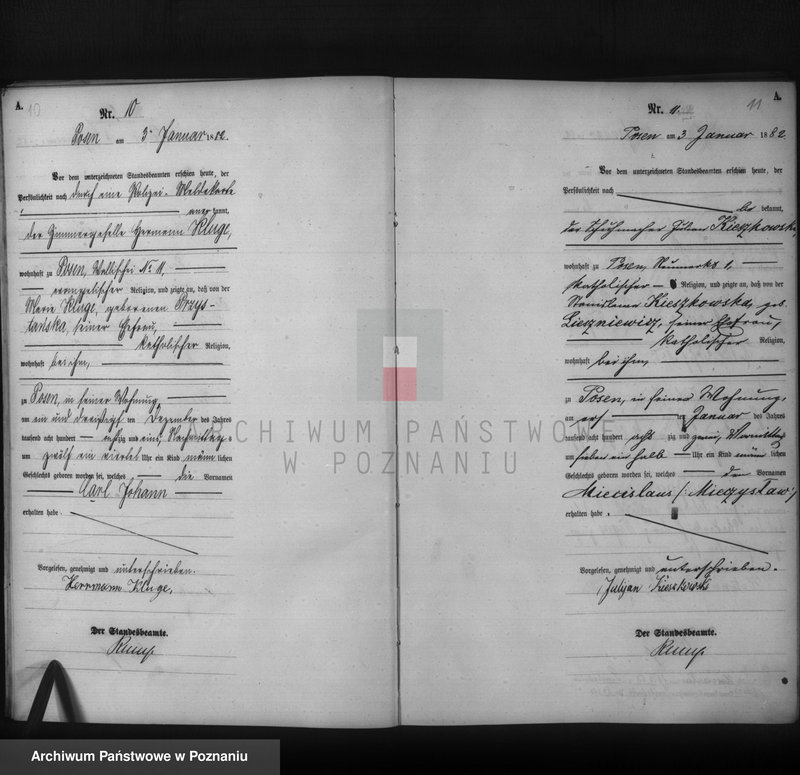 A.
10
Nr. 10
Posen am 3 Januar 1882.
Vor dem unterzeichneten Standesbeamten erschien heute, der
Persönlichkeit nach durch eine Polizei-Meldekarte
anerkannt,
der Hermann Kluge,
wohnhaft zu Posen, Wallischei No 11,
evangelischer Religion, und zeigte an, daß von der
Marie Kluge, geborenen Przys-
tańska, seiner Ehefrau,
katholischer Religion,
wohnhaft bei ihm,
zu Posen, in seiner Wohnung,
am ein und dreißigsten Dezember des Jahres
tausend acht hundert achtzig und eins, Nachmittags
um zwölf ein viertel Uhr ein Kind männlichen
Geschlechts geboren worden sei, welches die Vornamen
Carl Johann
erhalten habe.
Vorgelesen, genehmigt und unterschrieben.
Herrmann Kluge,
Der Standesbeamte.
A.
11
Nr. 11.
Posen am 3 Januar 1882.
Vor dem unterzeichneten Standesbeamten erschien heute, der
Persönlichkeit nach
bekannt,
der Schuhmacher Julian Kieszkowski,
wohnhaft zu Posen, Neumarkt 1,
katholischer Religion, und zeigte an, daß von der
Stanislawa Kieszkowska, geb.
Lieszniewicz, seiner Ehefrau,
katholischer Religion,
wohnhaft bei ihm,
zu Posen, in seiner Wohnung,
am ersten Januar des Jahres
tausend acht hundert achtzig und zwei, Vormittags
um sieben ein halb Uhr ein Kind männlichen
Geschlechts geboren worden sei, welches den Vornamen
Miecislaus (Mieczysław)
erhalten habe.
Vorgelesen, genehmigt und unterschrieben.
Julijan Kieszkowski
Der Standesbeamte.
ARCHIWUM PAŃSTWOWE
W POZNANIU
Archiwum Państwowe w Poznaniu